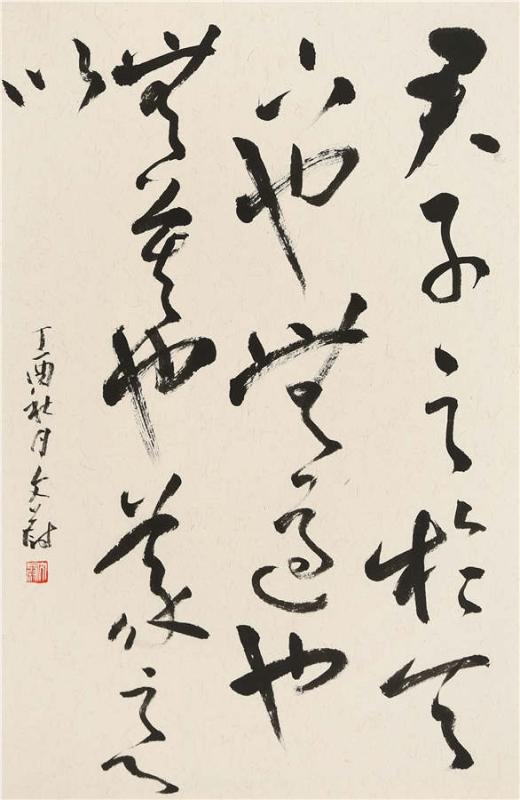 君子之於天
下也無適也
無莫也義之与
比
丁酉秋月文蔚